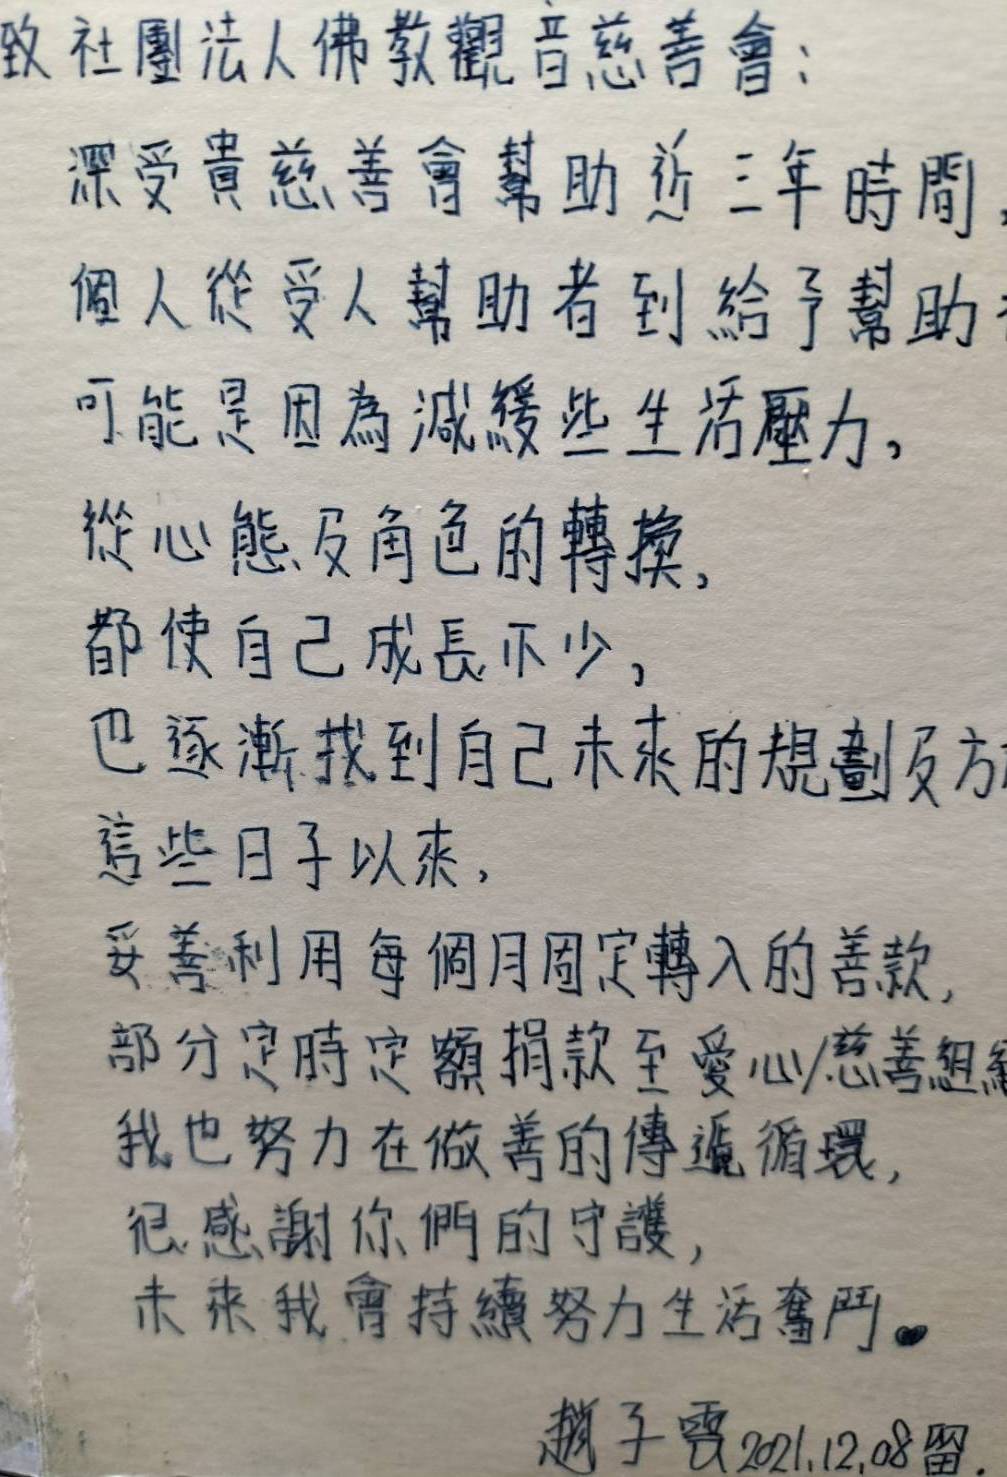 致社團法人佛教觀音慈善會：
深受貴慈善會幫助近三年時間，
個人從受人幫助者到給予幫助
可能是因為減緩些生活壓力，
從心態及角色的轉換，
都使自己成長不少，
也逐漸找到自己未來的規劃及方
這些日子以來，
妥善利用每個月固定轉入的善款，
部分定時定額捐款至愛心/慈善組
我也努力在做善的傳遞循環，
很感謝你們的守護，
未來我會持續努力生活奮鬥。
趙子雲2021.12.08留.